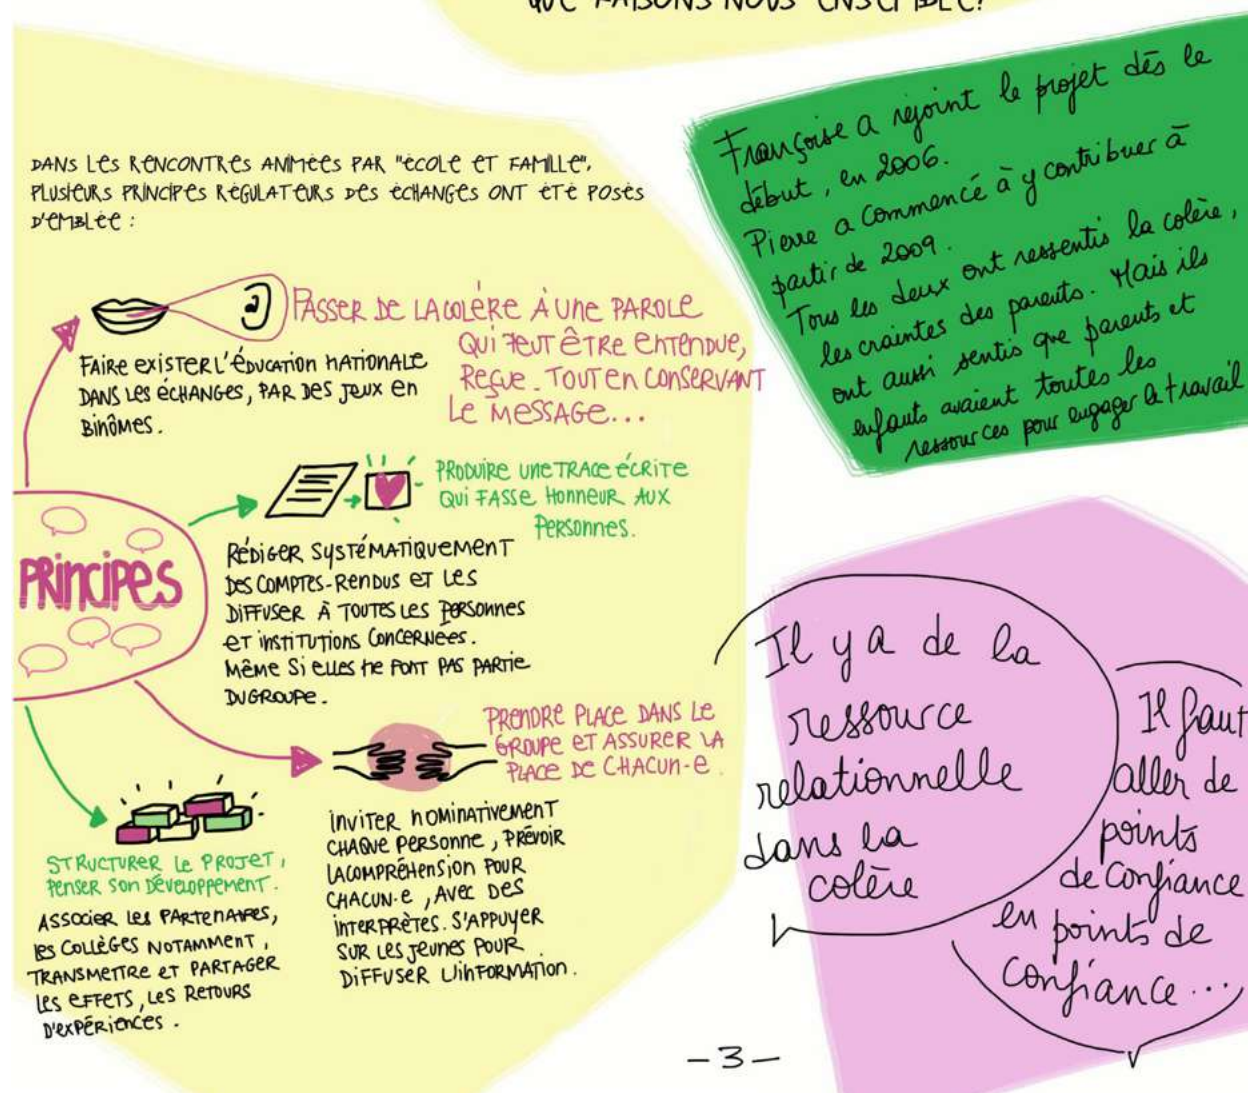 QUE FAISONS NOUS ENSEMBLE?
DANS LES RENCONTRES ANIMÉES PAR "ÉCOLE ET FAMILLE",
PLUSIEURS PRINCIPES RÉGULATEURS DES ÉCHANGES ONT ÉTÉ POSÉS
D'EMBLÉE :
PASSER DE LA COLÈRE À UNE PAROLE
QUI PEUT ÊTRE ENTENDUE,
REÇUE. TOUT EN CONSERVANT
LE MESSAGE...
FAIRE EXISTER L'ÉDUCATION NATIONALE
DANS LES ÉCHANGES, PAR DES JEUX EN
BINÔMES.
PRODUIRE UNE TRACE ÉCRITE
QUI FASSE HONNEUR AUX
PERSONNES.
RÉDIGER SYSTÉMATIQUEMENT
DES COMPTES-RENDUS ET LES
DIFFUSER À TOUTES LES PERSONNES
ET INSTITUTIONS CONCERNÉES.
MÊME SI ELLES NE FONT PAS PARTIE
DU GROUPE.
PRINCIPES
PRENDRE PLACE DANS LE
GROUPE ET ASSURER LA
PLACE DE CHACUN-E.
INVITER NOMINATIVEMENT
CHAQUE PERSONNE, PRÉVOIR
LA COMPRÉHENSION POUR
CHACUN-E, AVEC DES
INTERPRÈTES. S'APPUYER
SUR LES JEUNES POUR
DIFFUSER L'INFORMATION.
STRUCTURER LE PROJET,
PENSER SON DÉVELOPPEMENT.
ASSOCIER LES PARTENAIRES,
LES COLLÈGES NOTAMMENT,
TRANSMETTRE ET PARTAGER
LES EFFETS, LES RETOURS
D'EXPÉRIENCES.
Françoise a rejoint le projet dès le
début, en 2006.
Pierre a commencé à y contribuer à
partir de 2009.
Tous les deux ont ressentis la colère,
les craintes des parents. Mais ils
ont aussi sentis que parents et
enfants avaient toutes les
ressources pour engager le travail
Il y a de la
ressource
relationnelle
dans la
colère
Il faut
aller de
points
de confiance
en points de
confiance...
-3-